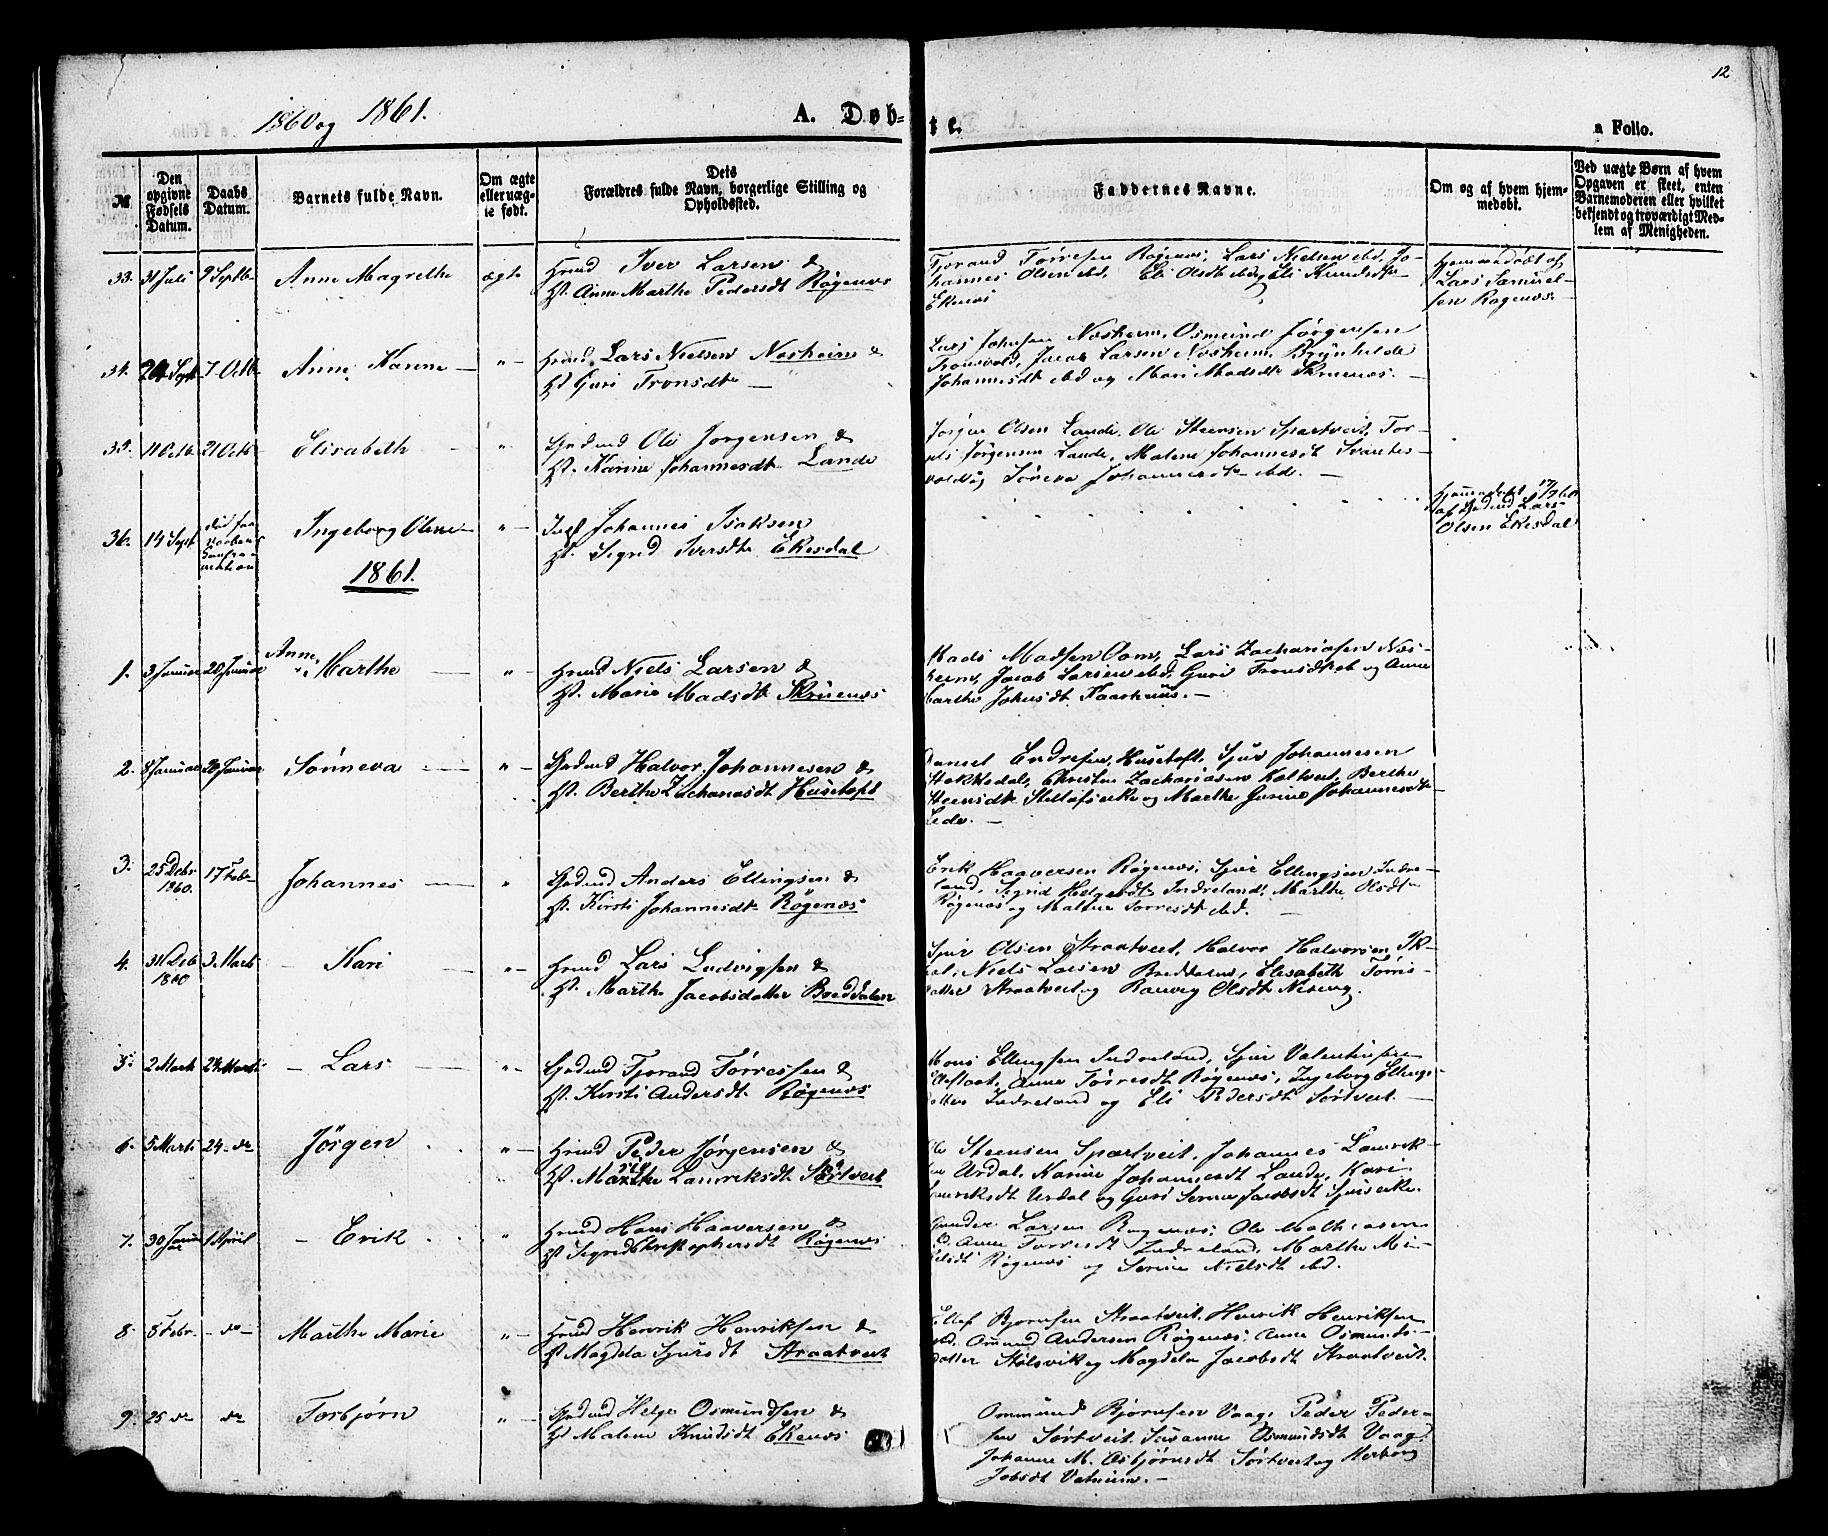 12
1860 og 1861.
A. Døb-
te.
a Folio.
№
Den opgivne Fødsels Datum.
Daabs Datum.
Barnets fulde Navn.
Om ægte eller uægte født.
Dets Forældres fulde Navn, borgerlige Stilling og Opholdssted.
Faddernes Navne.
Om og af hvem hjemmedøbt.
Ved uægte Børn af hvem Opgaven er skeet, enten Barnemoderen eller hvilket bekjendt og troværdigt Medlem af Menigheden.
33. 31 Juli 9 Septb Anne Magrethe ægte Hmd Iver Larsen &
H. Anne Marthe Pedersdt Røgenæs
Tjorand Tørresen Røgenæs, Lars Nielsen ibd, Jo-
hannes Olsen ibd, Eli Olsdt ibd og Eli Knudsdtr
Ekenæs
Hjemmedøbt af
Lars Samuel-
sen Røgenæs.
34. 7 Octb Anne Karine — " — Hmd Lars Nielsen Nosheim &
H. Guri Tronsdtr —
Lars Johnsen Nosheim, Osmund Jørgensen
Tronsvold, Jacob Larsen Nosheim, Brynhilde
Johannesdt ibd og Mari Madsdt Skruenæs. —
35. 11 Octb 21 Octb Elisabeth — " Gadmd Ole Jørgensen &
H. Karine Johannesdt Lande
Jørgen Olsen Lande, Ole Steensen Spartveit, Tor-
Jørgensen Lande, Malene Johannesdt Svartes-
vold og Søneva Johannesdt ibd. —
36. 14 Sept Ingeborg Oline — " — Johannes Isaksen
H. Sigrid Iversdtr Ekesdal
Hjemmedøbt 17/9 60
af Gadmd Lars
Olsen Ekesdal
1861.
1. 3 Januar 20 Januar Anne Marthe — " — Hmd Niels Larsen &
H. Marie Madsdt Skruenæs
Mads Madsen Dom, Lars Zachariasen Nos-
heim, Jacob Larsen ibd, Guri Tronsdt ibd og Anne
Marthe Johnsdt Faarhuus. —
2. 8 Januar 26 Januar Sønneva — " — Gadmd Halvor Johannesen &
H. Berthe Zachariasdt Husetoft
Daniel Endresen Husetoft, Sjur Johannesen
Stokkedal, Christen Zachariasen Kaltveit, Berthe
Steensdt og Marthe Gurine Johannesdt
Lede. —
3. 25 Debr 1860. 17 Febr Johannes — " Gadmd Anders Ellingsen &
H. Kirsti Johannesdt Røgenæs
Erik Haaversen Røgenæs, Sjur Ellingsen Indre-
land, Sigrid Helgesdt Indreland, Marthe Olsdt
Røgenæs og Malene Tørresdt ibd. —
4. 31 Deb 1860 3 Marts — Kari — " — Hmd Lars Ludvigsen &
H. Marthe Jacobsdatter Breddalen
Sjur Olsen Straatveit, Halvor Halvorsen
Niels Larsen Elisabeth Tørris-
datter Straatveit og Ranveig Olsdt
5. 2 Marts 24 Marts — Lars — " — Gadmd Tjorand Tørressen &
H. Kirsti Andersdt Røgenæs
Mons Ellingsen Indreland, Sjur Valentinsen
Anne Tørresdt Røgenæs, Ingeborg Ellings-
datter Indreland og Eli Pedersdt Sørtveit. —
6. 5 Marts 24 — do Jørgen " — Hmd Peder Jørgensen &
H. Marthe Lauriksdt Sørtveit
Ole Steensen Spartveit, Johannes Laurik-
sen Urdal, Karine Johannesdt Lande, Kari
Lauriksdt Urdal og Guri Serine Jacobsdt
7. 30 Januar 1 April — Erik " Hmd Hans Haaversen &
H. Sigrid Kristophersdt Røgenæs
Gunder Larsen Røgenæs, Ole Mathiasen
Anne Tørresdt Indreland, Marthe
Røgenæs og Serine Nielsdt ibd.
8. 5 Febr. — do — Marthe Marie " — Hmd Henrik Henriksen &
H. Magdela Sjursdt Straatveit
Ellef Bjørnsen Straatveit, Henrik Henriksen
ibd. Omund Andersen Røgenæs, Anne Osmunds-
datter Stølsvik og Magdela Jacobsdt Straatveit.
9. 25 do do Torbjørn " — Gadmd Helge Osmundsen &
H. Malene Knudsdt Ekenæs
Ommund Bjørnsen Vaag, Peder Peder-
sen Sørtveit, Susanne Osmundsdt Vaag,
Johanne M. Osbjørnsdt Sørtveit og Herborg
Jobsdt